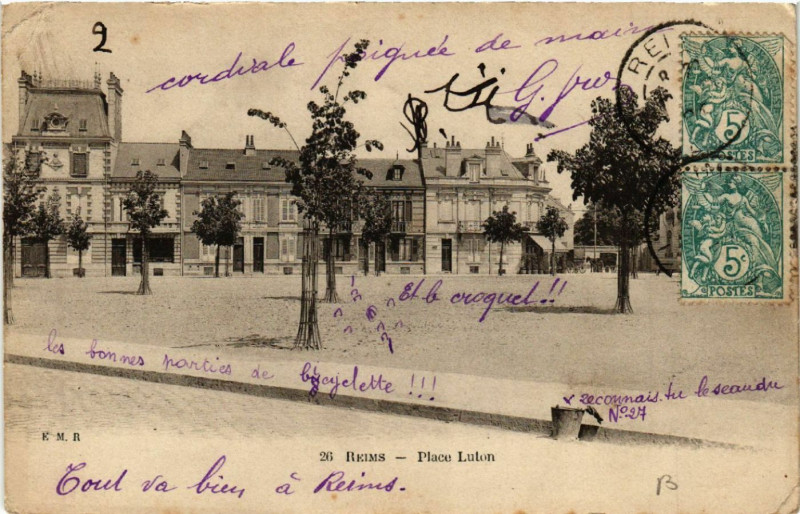 2
cordiale poignée de main
REI
5c
POSTES
5c
POSTES
Et le croquet!!
les bonnes parties de bicyclette!!!
x reconnais-tu le seau du
N°27
E M. R
26 REIMS — Place Luton
Tout va bien à Reims.
B